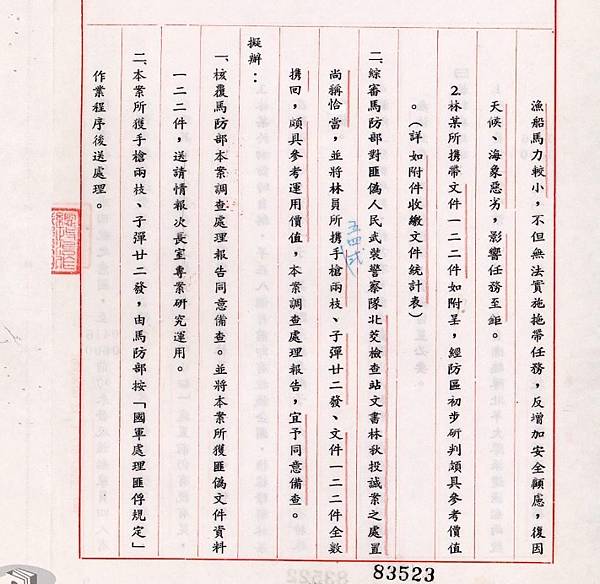 漁船馬力較小，不但無法實施拖帶任務，反增加安全顧慮，復因
天候、海象惡劣，影響任務至鉅。
2.林某所携帶文件一二二件如附呈，經防區初步研判頗具參考價值
。（詳如附件收繳文件統計表）
二、綜審馬防部對匪偽人民武裝警察隊北茭檢查站文書林秋投誠案之處置
尚稱恰當，並將林員所携手槍兩枝、子彈廿二發、文件一二二件全數
五四式
携回，頗具參考運用價值，本案調查處理報告，宜予同意備查。
擬辦：
一、核覆馬防部本案調查處理報告同意備查。並將本案所獲匪偽文件資料
一二二件，送請情報次長室專案研究運用。
二、本案所獲手槍兩枝、子彈廿二發，由馬防部按「國軍處理匪俘規定」
作業程序後送處理。
83523